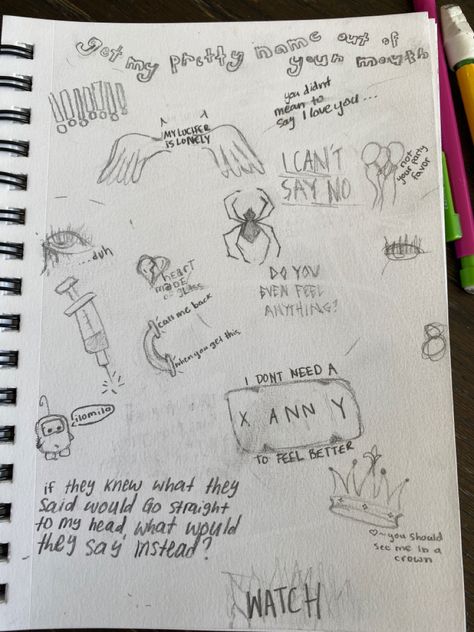 Get my pretty name out of
your mouth
!!!!!!!
MY LUCIFER
IS LONELY
you didnt
mean to
say I love you...
I CAN'T
SAY NO
not
your party
favor
...duh
heart
made
of glass
call me back
when you get this
DO YOU
EVEN FEEL
ANYTHING?
8
I DONT NEED A
X ANN Y
TO FEEL BETTER
ilomilo
if they knew what they
said would go straight
to my head, what would
they say instead?
♡~you should
see me in a
crown
WATCH